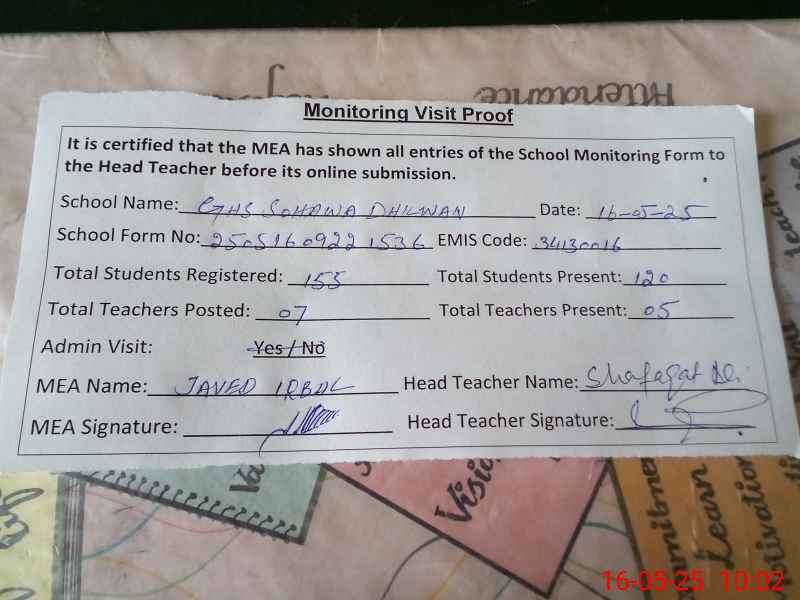 Attendance
Monitoring Visit Proof
It is certified that the MEA has shown all entries of the School Monitoring Form to
the Head Teacher before its online submission.
School Name: GHS SOHAWA DHILWAN Date: 16-05-25
School Form No: 2505160922 1536 EMIS Code: 34130016
Total Students Registered: 155 Total Students Present: 120
Total Teachers Posted: 07 Total Teachers Present: 05
Admin Visit: Yes / No
MEA Name: JAVED IQBAL Head Teacher Name: Shafaqat Ali
MEA Signature: Head Teacher Signature:
Visio
Learn
16-05-25 10:02